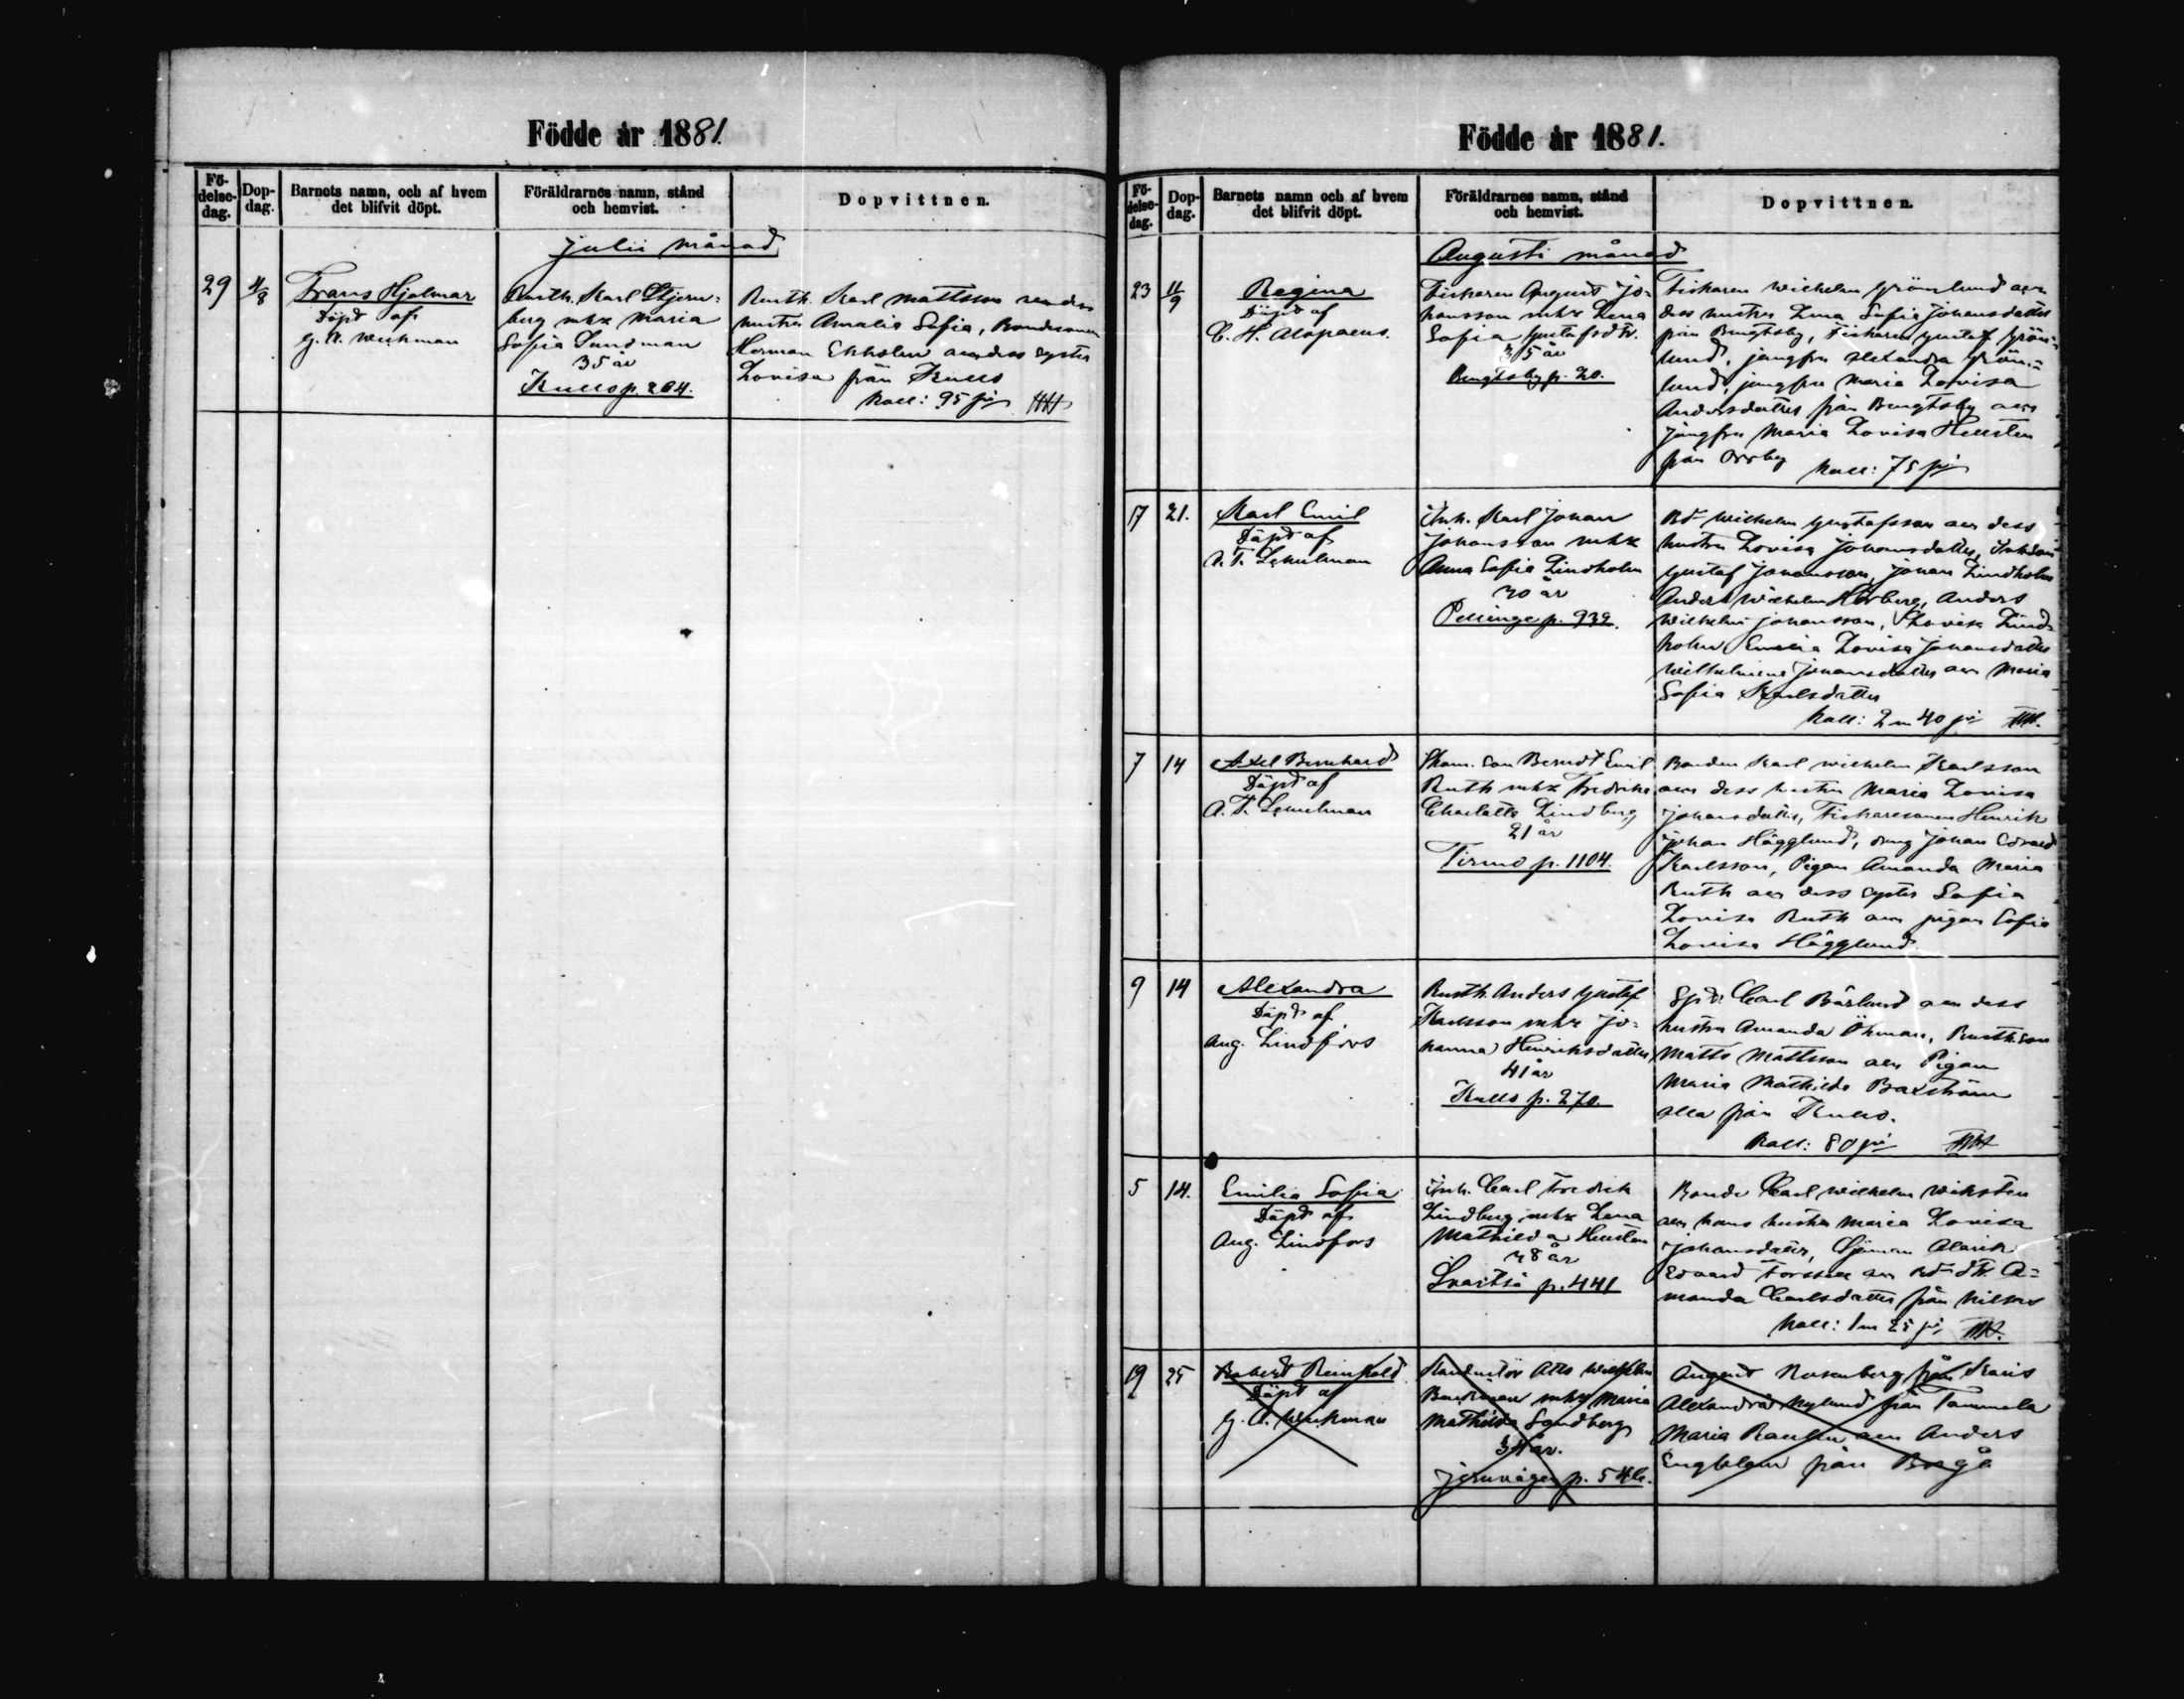 Födde år 1881.
Fö-
delse-
dag.
Dop-
dag.
Barnets namn, och af hvem
det blifvit döpt.
Föräldrarnes namn, stånd
och hemvist.
Dopvittnen.
Julii månad
29 4/8
Frans Hjalmar
Döpt af
G. A. Weckman
Rusth. Karl Stjern-
berg mhx Maria
Sofia Sundman
35 år
Kullo p. 264.
Rusth. Karl Mattsson
hustru Amalia Sofia, Bondesonen
Herman Ekholm dess syster
Lovisa från Kullo
Koll: 95 pi
Födde år 1881.
Fö-
delse-
dag.
Dop-
dag.
Barnets namn och af hvem
det blifvit döpt.
Föräldrarnes namn, stånd
och hemvist.
Dopvittnen.
Augusti månad
23 11/9
Regina
Döpt af
C. H. Alopaeus.
Fiskaren August Jo-
hansson mhx Lena
Sofia Gustafsdtr.
35 år
Bengtsby p. 20.
Fiskaren Wilhelm Grönlund
dess hustru Lena Sofia Johansdotter
från Bengtsby, Fiskaren Gustaf Grön-
lund, jungfru Alexandra Grön-
lund, jungfru Maria Lovisa
Andersdotter från Bengtsby
jungfru Maria Lovisa Hellsten
från Orrby Koll: 75 pi
17 21.
Karl Emil
Döpt af
A. T. Schulman
Inh. Karl Johan
Johansson mhx
Anna Sofia Lindholm
30 år
Pellinge p. 939.
Wilhelm Gustafsson dess
hustru Lovisa Johansdotter,
Gustaf Johansson, Johan Lindholm
Anders Wilhelm Anders
Wilhelm Johansson, Lovisa Lind-
holm Lovisa Johansdotter
Wilhelmina Johansdotter Maria
Sofia Karlsdotter
Koll: 2 m 40 pi
7 14
Axel Bernhard
Döpt af
A. T. Schulman
Son Berndt Emil
Ruth mhx Fredrika
Charlotta Lindberg
21 år
Tirmo p. 1104.
Bonden Karl Wilhelm Karlsson
dess hustru Maria Lovisa
Johansdotter, Fiskaresonen Henrik
Johan Hägglund, dräng Johan Edvard
Karlsson, Pigan Amanda Maria
Ruth dess syster Sofia
Lovisa Ruth pigan Sofia
Lovisa Hägglund
9 14
Alexandra
Döpt af
Aug. Lindfors
Rusth. Anders Gustaf
Karlsson mhx Jo-
hanna Henriksdotter
41 år
Kullo p. 270.
Carl Bärlund dess
hustru Amanda Öhman, Rusth. Son
Matts Mattsson Pigan
Maria Mathilda Backström
alla från Kullo.
Koll: 80 pi
5 14.
Emilia Sofia
Döpt af
Aug. Lindfors
Inh. Carl Fredrik
Lindberg mhx Lena
Mathilda Hellsten
38 år
Svartså p. 441
Bonde Carl Wilhelm Wiksten
hans hustru Maria Lovisa
Johansdotter, Sjöman Alarik
Edvard Forssell A-
manda Carlsdotter från
Koll: 1 m 25 pi
19 25
Robert Reinhold
Döpt af
G. A. Weckman
Konduktör Otto Wilhelm
mhx Maria
Mathilda Sandberg
34 år.
Jernvägen p. 546.
August Rosenberg från Karis
Alexandra Nylund från Tammela
Maria Anders
Engblom från Borgå